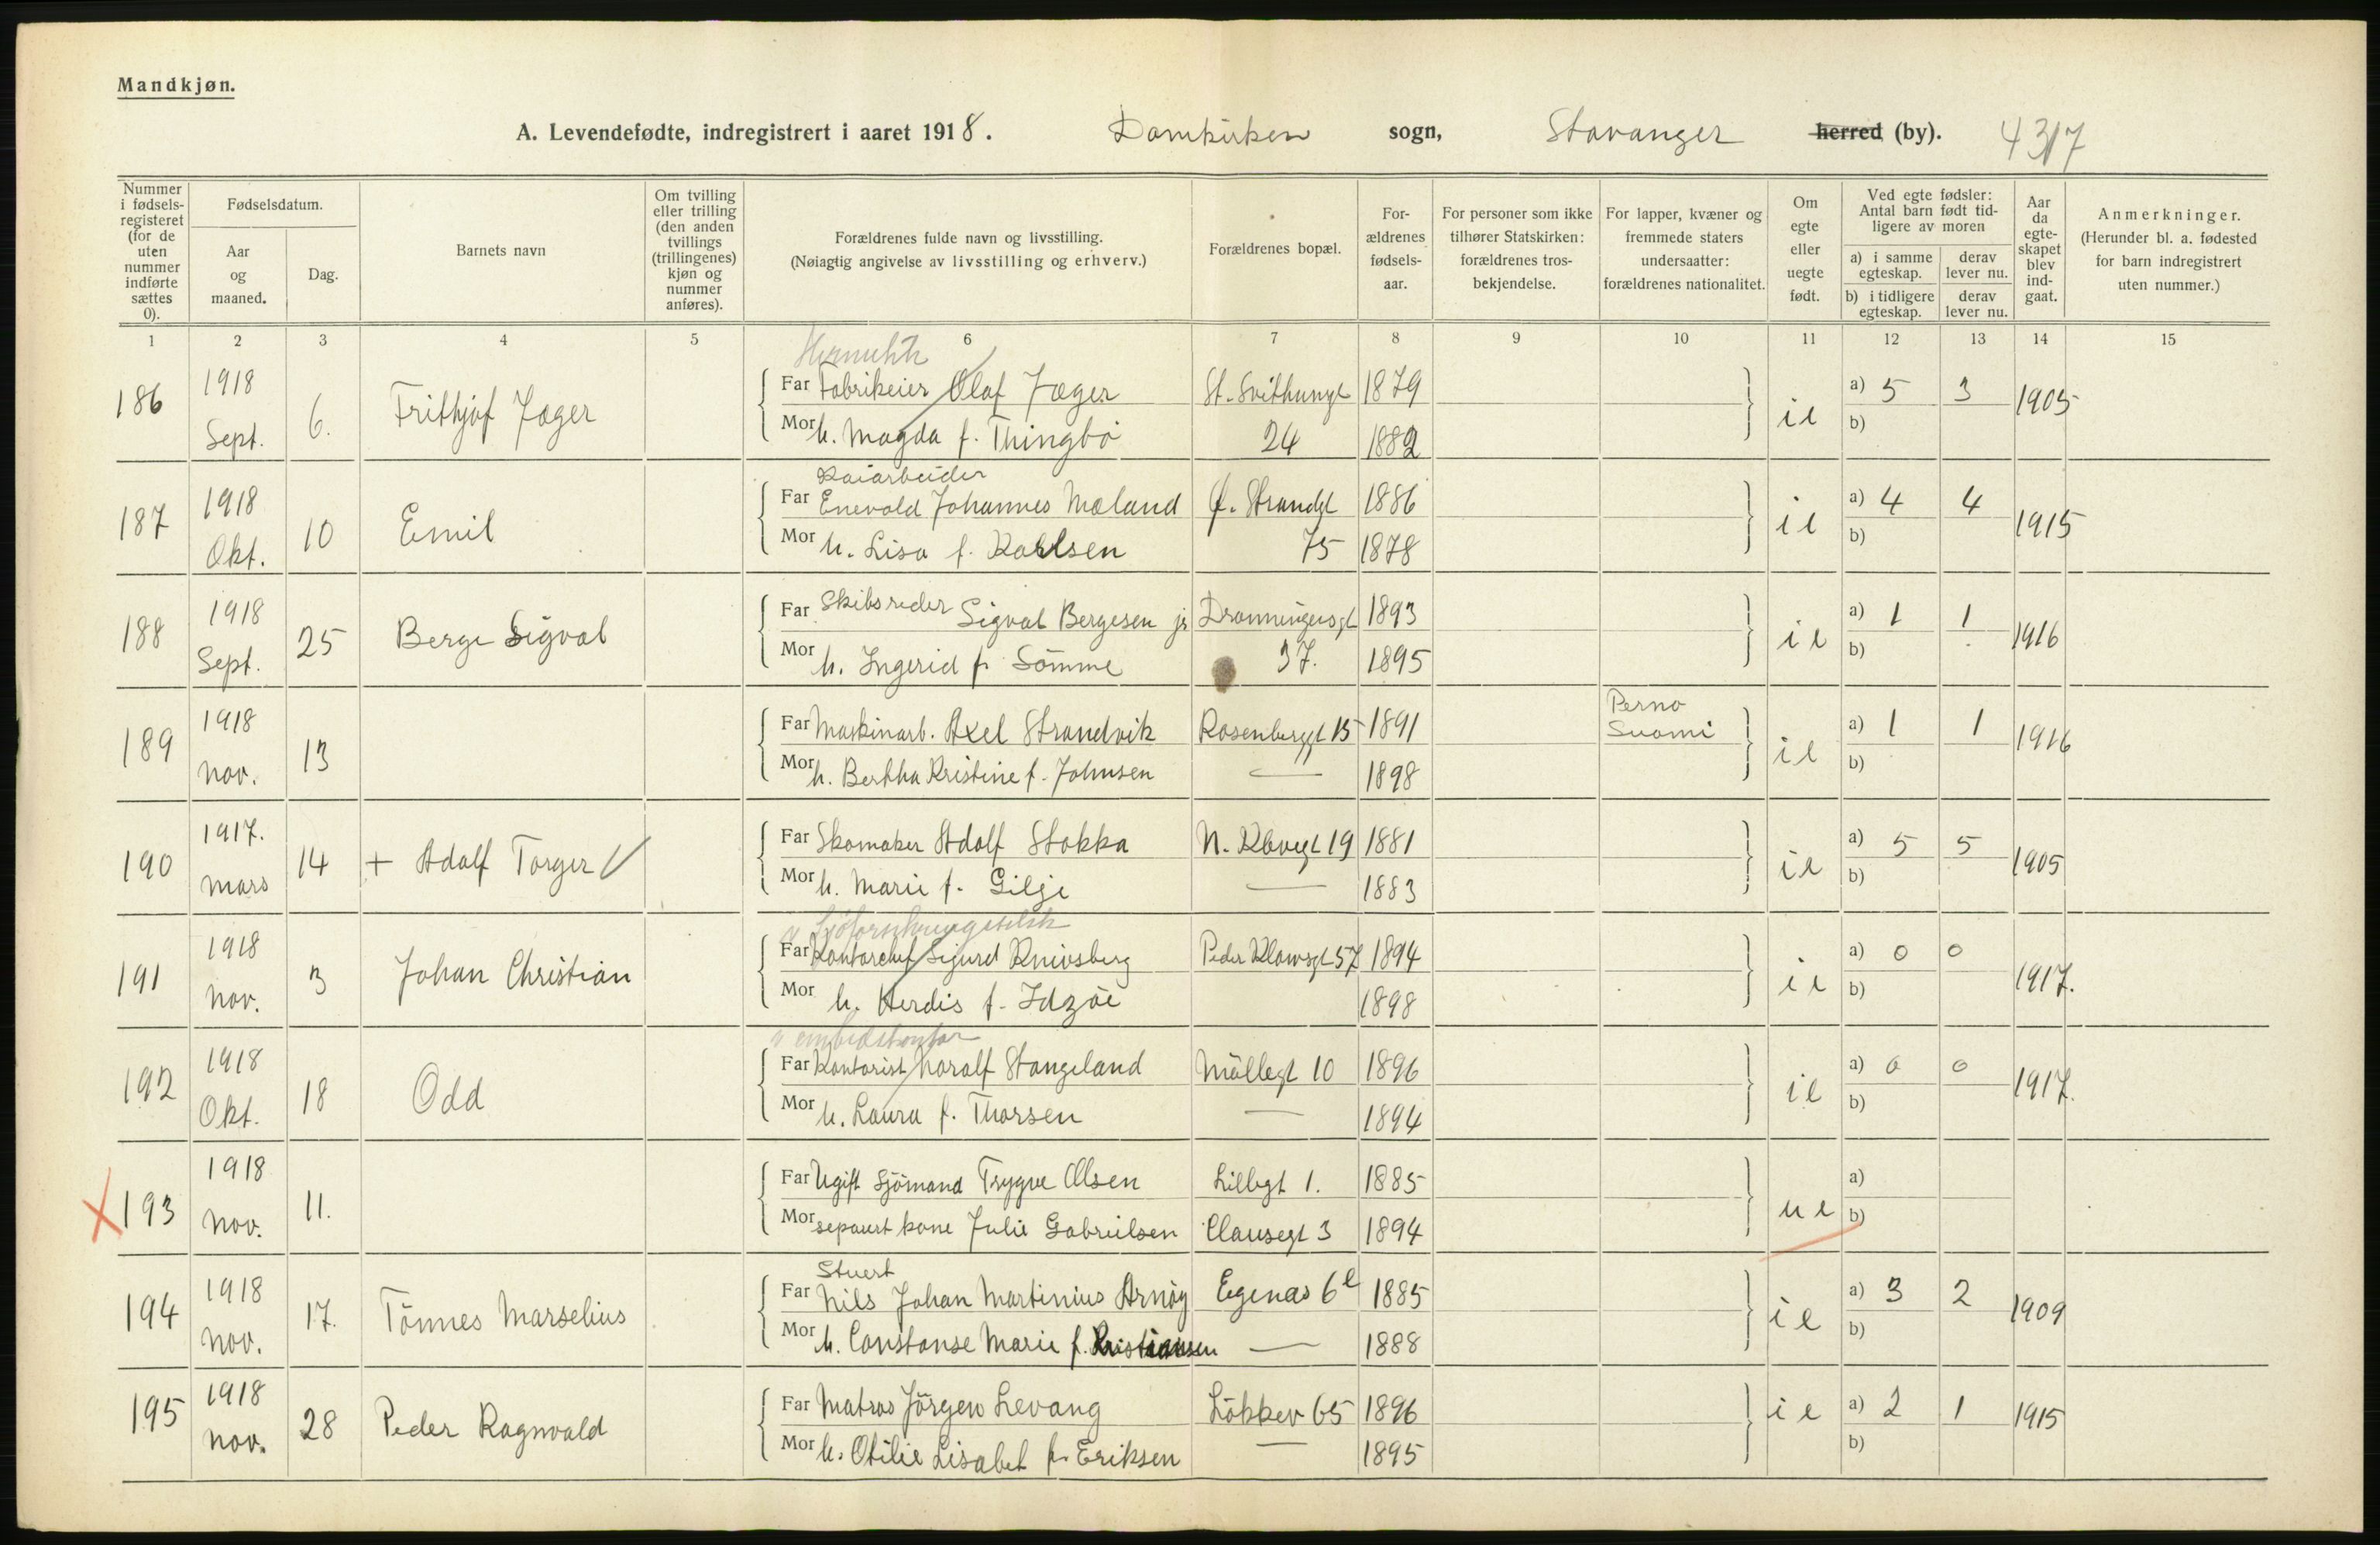 Mandkjøn.
A. Levendefødte, indregistrert i aaret 1918. Domkirken sogn, Stavanger herred (by). 4317
Nummer i fødsels-registeret (for de uten nummer indførte sættes 0).
Fødselsdatum.
Aar og maaned.
Dag.
Barnets navn
Om tvilling eller trilling (den anden tvillings (trillingenes) kjøn og nummer anføres).
Forældrenes fulde navn og livsstilling.
(Nøiagtig angivelse av livsstilling og erhverv.)
Forældrenes bopæl.
For-ældrenes fødsels-aar.
For personer som ikke tilhører Statskirken: forældrenes tros-bekjendelse.
For lapper, kvæner og fremmede staters undersaatter: forældrenes nationalitet.
Om egte eller uegte født.
Ved egte fødsler: Antal barn født tid-ligere av moren
a) i samme egteskap. derav lever nu.
b) i tidligere egteskap. derav lever nu.
Aar da egte-skapet blev ind-gaat.
Anmerkninger.
(Herunder bl. a. fødested for barn indregistrert uten nummer.)
1 2 3 4 5 6 7 8 9 10 11 12 13 14 15
Hermetik
186 1918 Sept. 6. Frithjof Jæger
Far Fabrikeier Olaf Jæger St. Svithungt 1879 a) 5 3 1905
Mor h. Magda f. Thingbö 24 1882 ie b)
Kaiarbeider
187 1918 Okt. 10 Emil
Far Enevold Johannes Mæland Ø. Strandgt 1886 a) 4 4 1915
Mor h. Lisa f. Karlsen 75 1878 ie b)
188 1918 Sept. 25 Berge Sigval
Far Skibsreder Sigval Bergesen jr Dronningensgt 1893 a) 1 1 1916
Mor h. Ingerid f. Sömme 37. 1895 ie b)
189 1918 Nov. 13
Far Maskinarb. Axel Strandvik Rosenberggt 15 1891 Perno Suomi a) 1 1 1916
Mor h. Bertha Kristine f. Johnsen — 1898 ie b)
190 1917. Mars 14 + Adolf Torger √
Far Skomaker Adolf Stokka N. Kleivgt 19 1881 a) 5 5 1905
Mor h. Marie f. Gilje — 1883 ie b)
191 1918 Nov. 3 Johan Christian
Far Kontorchef Sigurd Knivsberg Peder Klowsgt 57 1894 a) 0 0 1917.
Mor h. Herdis f. Idzöe 1898 ie b)
192 1918 Okt. 18 Odd
Far Kontorist Noralf Stangeland Möllegt 10 1896 a) 0 0 1917.
Mor h. Laura f. Thorsen — 1894 ie b)
X 193 1918 Nov. 11.
Far Ugift Sjömand Trygve Olsen Lillegt 1. 1885 a)
Mor separert kone Julie Gabrielsen Clausegt 3 1894 ue b)
Stuert
194 1918 Nov. 17. Tönnes Marselius
Far Nils Johan Martinius Arnöy Egenæs 6e 1885 a) 3 2 1909
Mor h. Constanse Marie f. Kristiansen — 1888 ie b)
195 1918 Nov. 28 Peder Ragnvald
Far Matros Jörgen Levang Lökkev 65 1896 ie a) 2 1 1915
Mor h. Otilie Lisabet f. Eriksen — 1895 b)